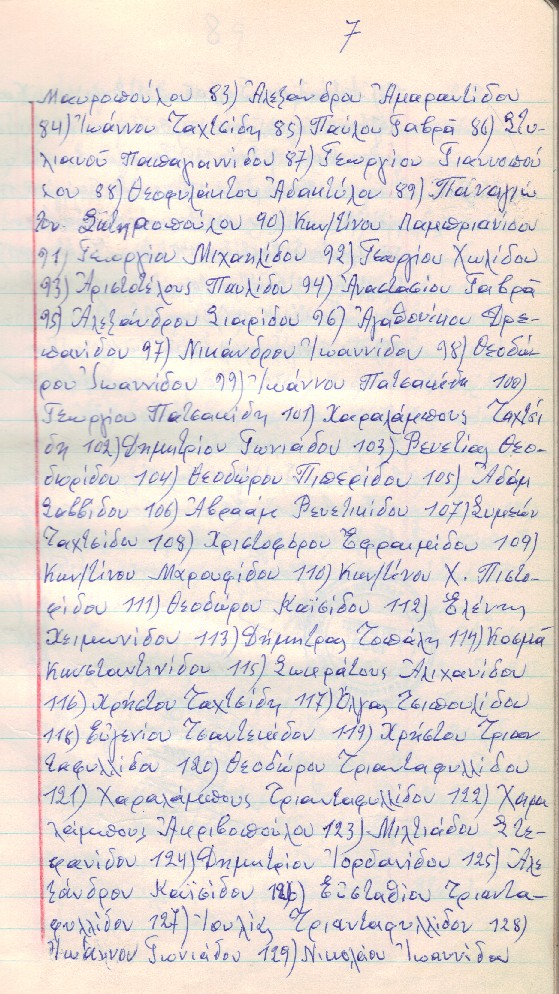 7
Μαυροπούλου 83) Ἀλεξάνδρου Ἀμαραντίδου
84) Ἰωάννου Ταχτσίδη 85) Παύλου Γαβρᾶ 86) Στυ-
λιανοῦ Παπαγιαννίδου 87) Γεωργίου Γιαννοπού
λου 88) Θεοφυλάκτου Ἀδακτύλου 89) Παναγιώ
του Σωτηροπούλου 90) Κων/τίνου Λαμπριανίδου
91) Γεωργίου Μιχαηλίδου 92) Γεωργίου Χωλίδου
93) Ἀριστοτέλους Παυλίδου 94) Ἀναστασίου Γαβρᾶ
95) Ἀλεξάνδρου Σιαρίδου 96) Ἀγαθονίκου Δρε-
πανίδου 97) Νικάνδρου Ἰωαννίδου 98) Θεοδώ-
ρου Ἰωαννίδου 99) Ἰωάννου Πατσακίδη 100)
Γεωργίου Πατσακίδη 101) Χαραλάμπους Ταχτσί
δη 102) Δημητρίου Γωνιάδου 103) Ρενετίας Θεο-
δωρίδου 104) Θεοδώρου Πιπερίδου 105) Ἀδάμ
Σαββίδου 106) Ἀβραάμ Ρενετικίδου 107) Συμεών
Ταχτσίδου 108) Χριστοφόρου Ἐφραιμίδου 109)
Κων/τίνου Μαρουφίδου 110) Κων/τίνου Χ. Πιστο-
φίδου 111) Θεοδώρου Καϊσίδου 112) Ἑλένης
Χειμωνίδου 113) Δήμητρας Τοπάλη 114) Κοσμᾶ
Κωνσταντινίδου 115) Σωκράτους Ἀλιχανίδου
116) Χρήστου Ταχτσίδη 117) Ὄλγας Τσιπουλίδου
118) Εὐγενίου Τσαντεκίδου 119) Χρήστου Τριαν
ταφυλλίδου 120) Θεοδώρου Τριανταφυλλίδου
121) Χαραλάμπους Τριανταφυλλίδου 122) Χαρα
λάμπους Ἀκριβοπούλου 123) Μιλτιάδου Στε-
φανίδου 124) Δημητρίου Ἰορδανίδου 125) Ἀλε-
ξάνδρου Καϊσίδου 126) Εὐσταθίου Τριαντα-
φυλλίδου 127) Ἰουλίας Τριανταφυλλίδου 128)
Ἰωάννου Γωνιάδου 129) Νικολάου Ἰωαννίδου